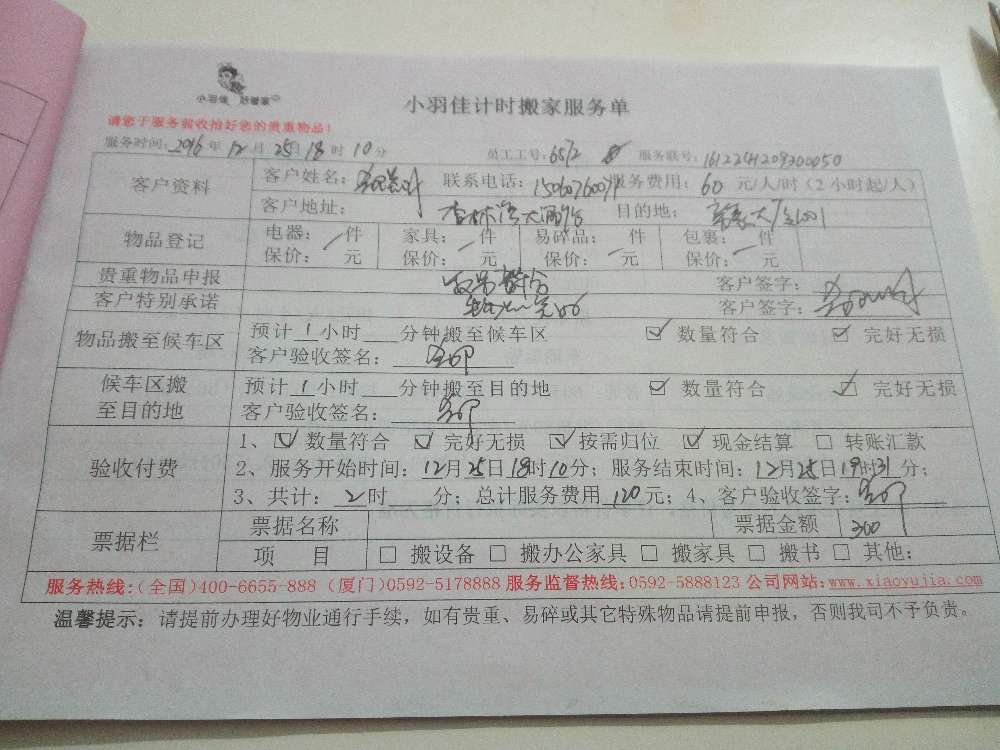 小羽佳 好管家
小羽佳计时搬家服务单
请您于服务前收拾好您的贵重物品！
服务时间：2016年12月25日18时10分 员工工号：6512 服务联号：1612241209300050
客户资料 客户姓名： 联系电话： 服务费用：60元/人/时（2小时起/人）
客户地址： 目的地：
物品登记 电器：件 家具：件 易碎品：件 包裹：件
保价：元 保价：元 保价：元 保价：元
贵重物品申报 客户签字：
客户特别承诺 客户签字：
物品搬至候车区 预计1小时 分钟搬至候车区 ☑ 数量符合 ☑ 完好无损
客户验收签名：
候车区搬至目的地 预计1小时 分钟搬至目的地 ☑ 数量符合 ☑ 完好无损
客户验收签名：
验收付费 1、☑ 数量符合 ☑ 完好无损 ☑ 按需归位 ☑ 现金结算 □ 转账汇款
2、服务开始时间：12月25日18时10分；服务结束时间：12月25日19时31分；
3、共计：2时 分；总计服务费用120元；4、客户验收签字：
票据栏 票据名称 票据金额 300
项 目 □ 搬设备 □ 搬办公家具 □ 搬家具 □ 搬书 □ 其他：
服务热线：（全国）400-6655-888（厦门）0592-5178888 服务监督热线：0592-5888123 公司网站：www.xiaoyujia.com
温馨提示：请提前办理好物业通行手续，如有贵重、易碎或其它特殊物品请提前申报，否则我司不予负责。